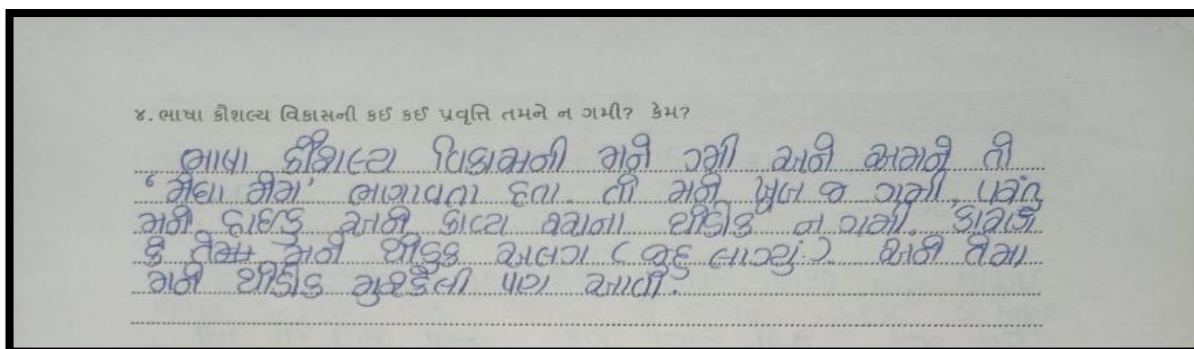 ૪. ભાષા કૌશલ્ય વિકાસની કઈ કઈ પ્રવૃત્તિ તમને ન ગમી? કેમ?
ભાષા કૌશલ્ય વિકાસની મને ગમી અને અમને તો
'મેઘા મેમ' ભણાવતા હતા. તો મને ખુબ જ ગમી. પરંતુ
મને હાઈકુ અને કાવ્ય થોડીક ન ગમી. કારણ
કે તેમા મને થોડુક અલગ (જુદુ લાગ્યું). અને તેમા
મને થોડીક મુશ્કેલી પણ આવી.